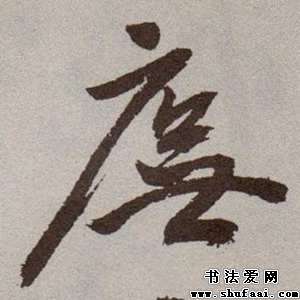 廡
书法爱网
www.shufaai.com